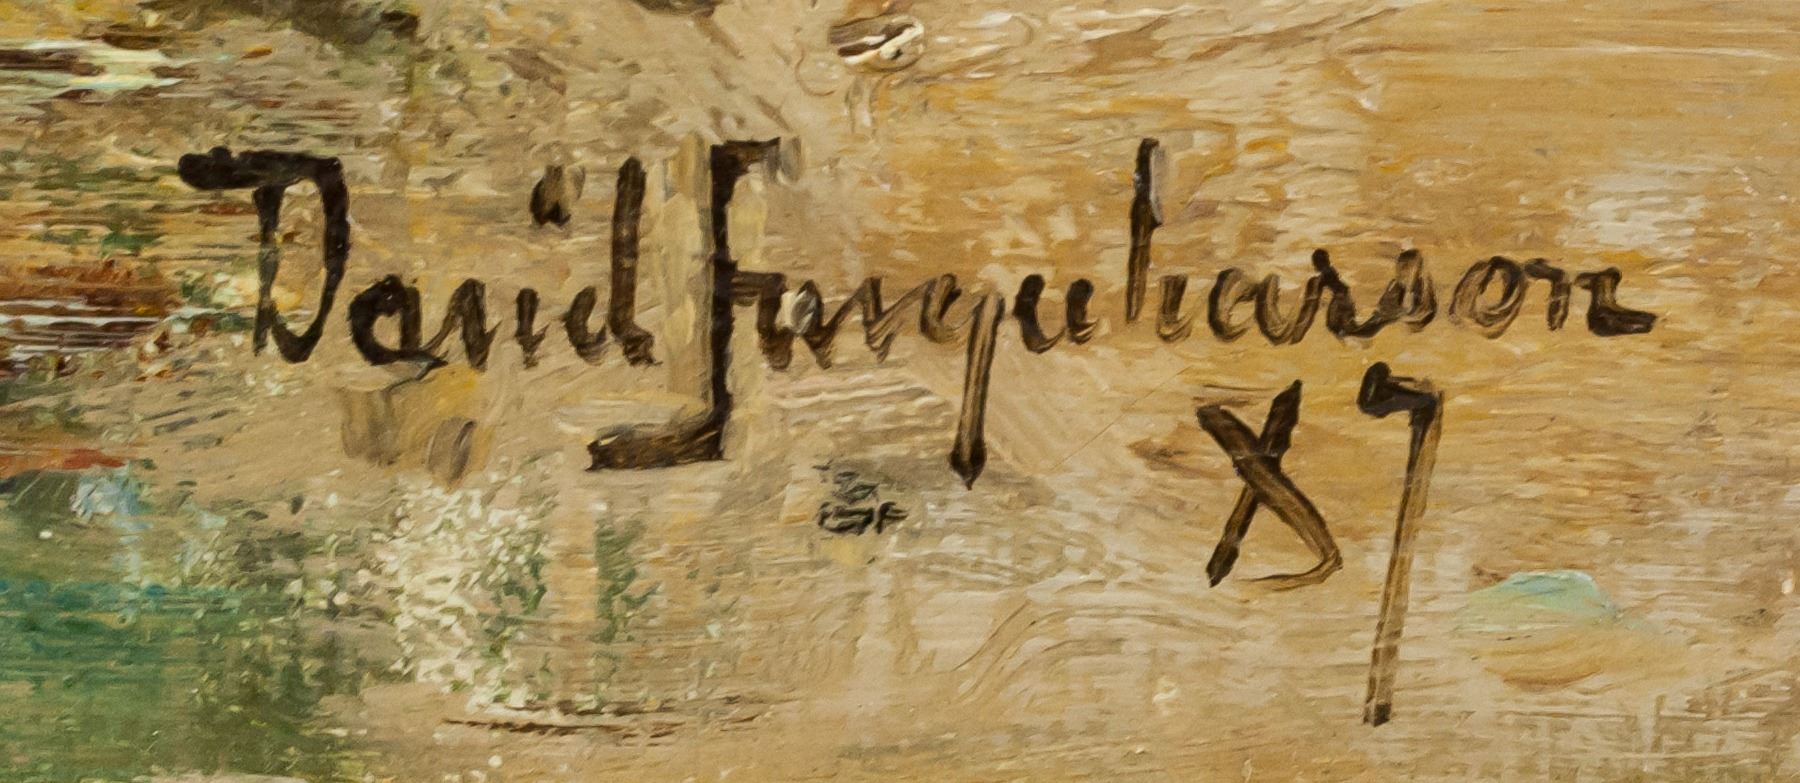 David Farquharson
87